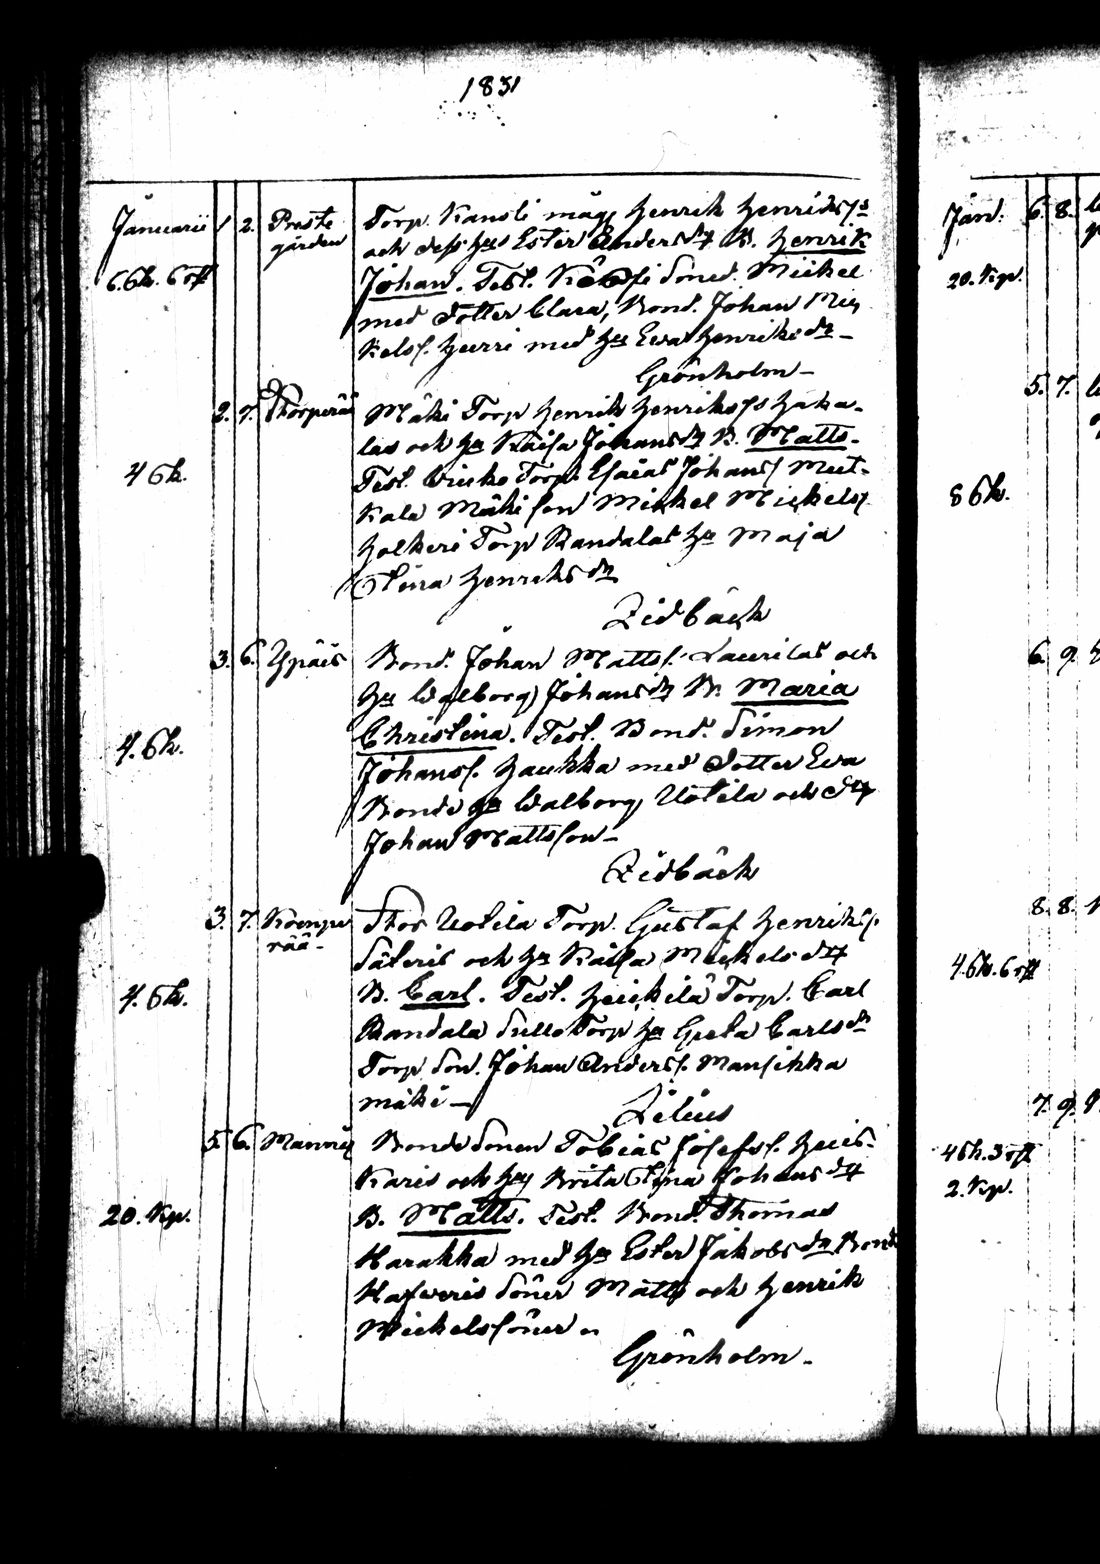 1831
Januarii 1 2. Preste
gården
6 Sk. 6 rst
Torp. Kansti måg Henrik Henrikss:s
och dess hu Ester Andersdr B. Henrik
Johan. Test. Soned. Mickel
med dotter Clara, Bond. Johan Mic
kelss. Hurri med hu Ewa Henriksdr
Grönholm
2. 7. Thorperä
4 Sk.
Mäki Torp Henrik Henrikss:s Haka-
las och hu Kaisa Johansdr B. Matts.
Test. Torp. Esaias Johanss
kala Mäki son Mickel Mickelss.
Holkeri Torp Randalas hu Maja
Stina Henriksdr
Lidbäck
3. 6. Ypäis
4. Sk.
Bond. Johan Mattss. Laurilas och
hu Walborg Johansdr B. Maria
Christina. Test. Bond. Simon
Johanss. Haukka med dotter Ewa
Bonde hu Walborg Uotila och
Johan Mattsson
Lidbäck
3. 7.
rää
4. Sk.
Stor Uotila Torp. Gustaf Henrikss.
Säteris och hu Kaisa Mickelsdr
B. Carl. Test. Heickilä Torp. Carl
Randala Torp hu Greta Carlsdr
Torp. Son. Johan Anderss. Mansikka
mäki
Lilius
5. 6.
20. Kp.
Bonde Sonen Tobias Josefss. Huis-
karis och hu Brita Stina Johansdr
B. Matts. Test. Bond. Thomas
Harakka med hu Ester Jakobsdr Bond
Hafweris Söner Matts och Henrik
Mickelssöner
Grönholm
Jan: 6. 8.
20. Kp.
5. 7.
8 Sk.
6. 9.
8. 8.
4 Sk. 6 rst
7. 9.
4 Sk. 3 rst
2. Kp.